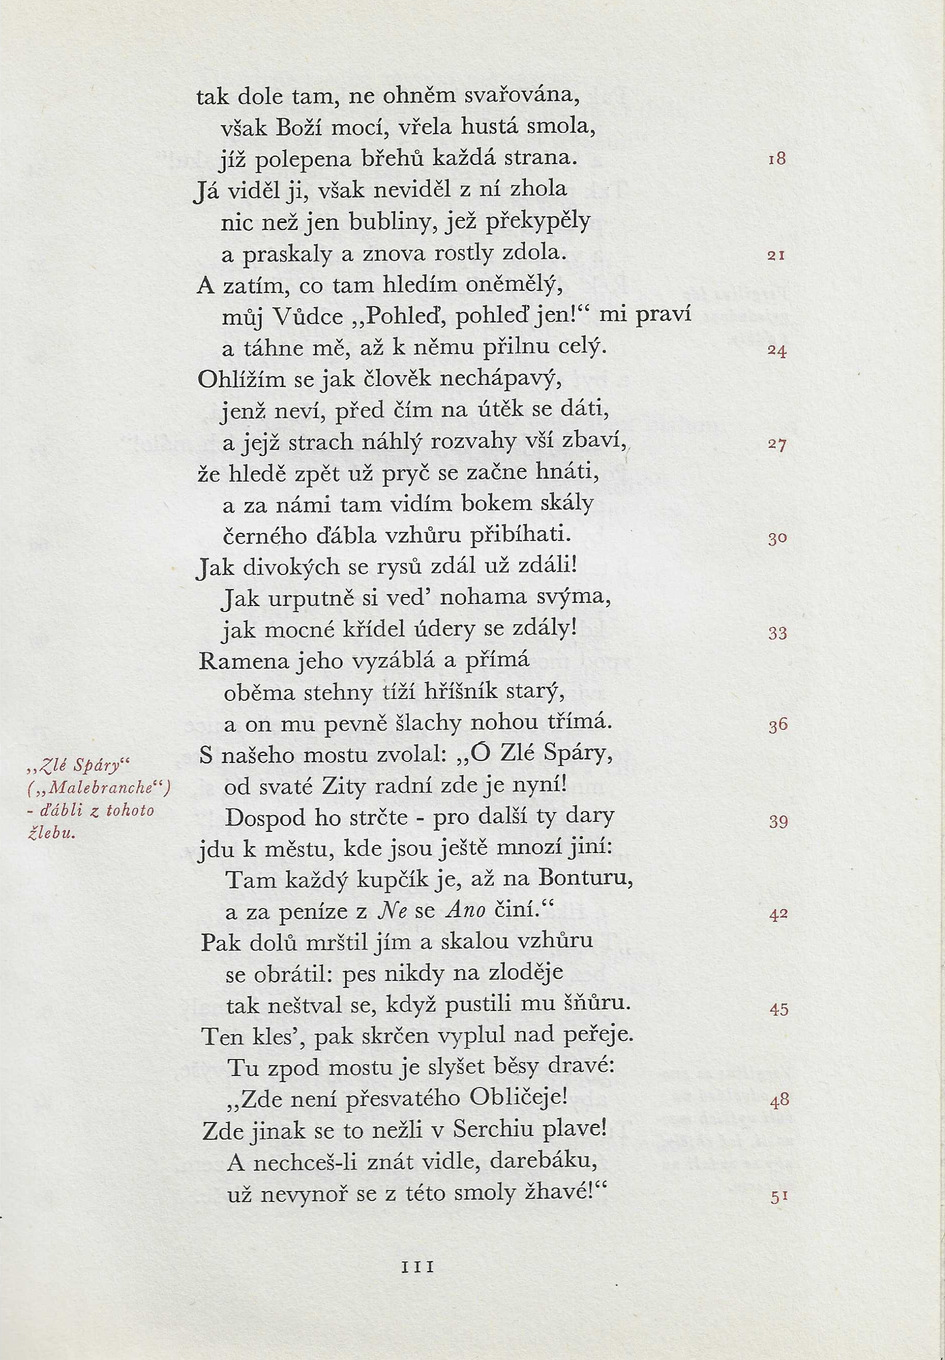 tak dole tam, ne ohněm svařována,
však Boží mocí, vřela hustá smola,
jíž polepena břehů každá strana. 18
Já viděl ji, však neviděl z ní zhola
nic než jen bubliny, jež překypěly
a praskaly a znova rostly zdola. 21
A zatím, co tam hledím oněmělý,
můj Vůdce „Pohleď, pohleď jen!“ mi praví
a táhne mě, až k němu přilnu celý. 24
Ohlížím se jak člověk nechápavý,
jenž neví, před čím na útěk se dáti,
a jejž strach náhlý rozvahy vší zbaví, 27
že hledě zpět už pryč se začne hnáti,
a za námi tam vidím bokem skály
černého ďábla vzhůru přibíhati. 30
Jak divokých se rysů zdál už zdáli!
Jak urputně si ved’ nohama svýma,
jak mocné křídel údery se zdály! 33
Ramena jeho vyzáblá a přímá
oběma stehny tíží hříšník starý,
a on mu pevně šlachy nohou třímá. 36
S našeho mostu zvolal: „Ó Zlé Spáry,
od svaté Zity radní zde je nyní!
Dospod ho strčte - pro další ty dary 39
jdu k městu, kde jsou ještě mnozí jiní:
Tam každý kupčík je, až na Bonturu,
a za peníze z Ne se Ano činí.“ 42
Pak dolů mrštil jím a skalou vzhůru
se obrátil: pes nikdy na zloděje
tak neštval se, když pustili mu šňůru. 45
Ten kles’, pak skrčen vyplul nad peřeje.
Tu zpod mostu je slyšet běsy dravé:
„Zde není přesvatého Obličeje! 48
Zde jinak se to nežli v Serchiu plave!
A nechceš-li znát vidle, darebáku,
už nevynoř se z této smoly žhavé!“ 51
„Zlé Spáry“
(„Malebranche“)
- ďábli z tohoto
žlebu.
III